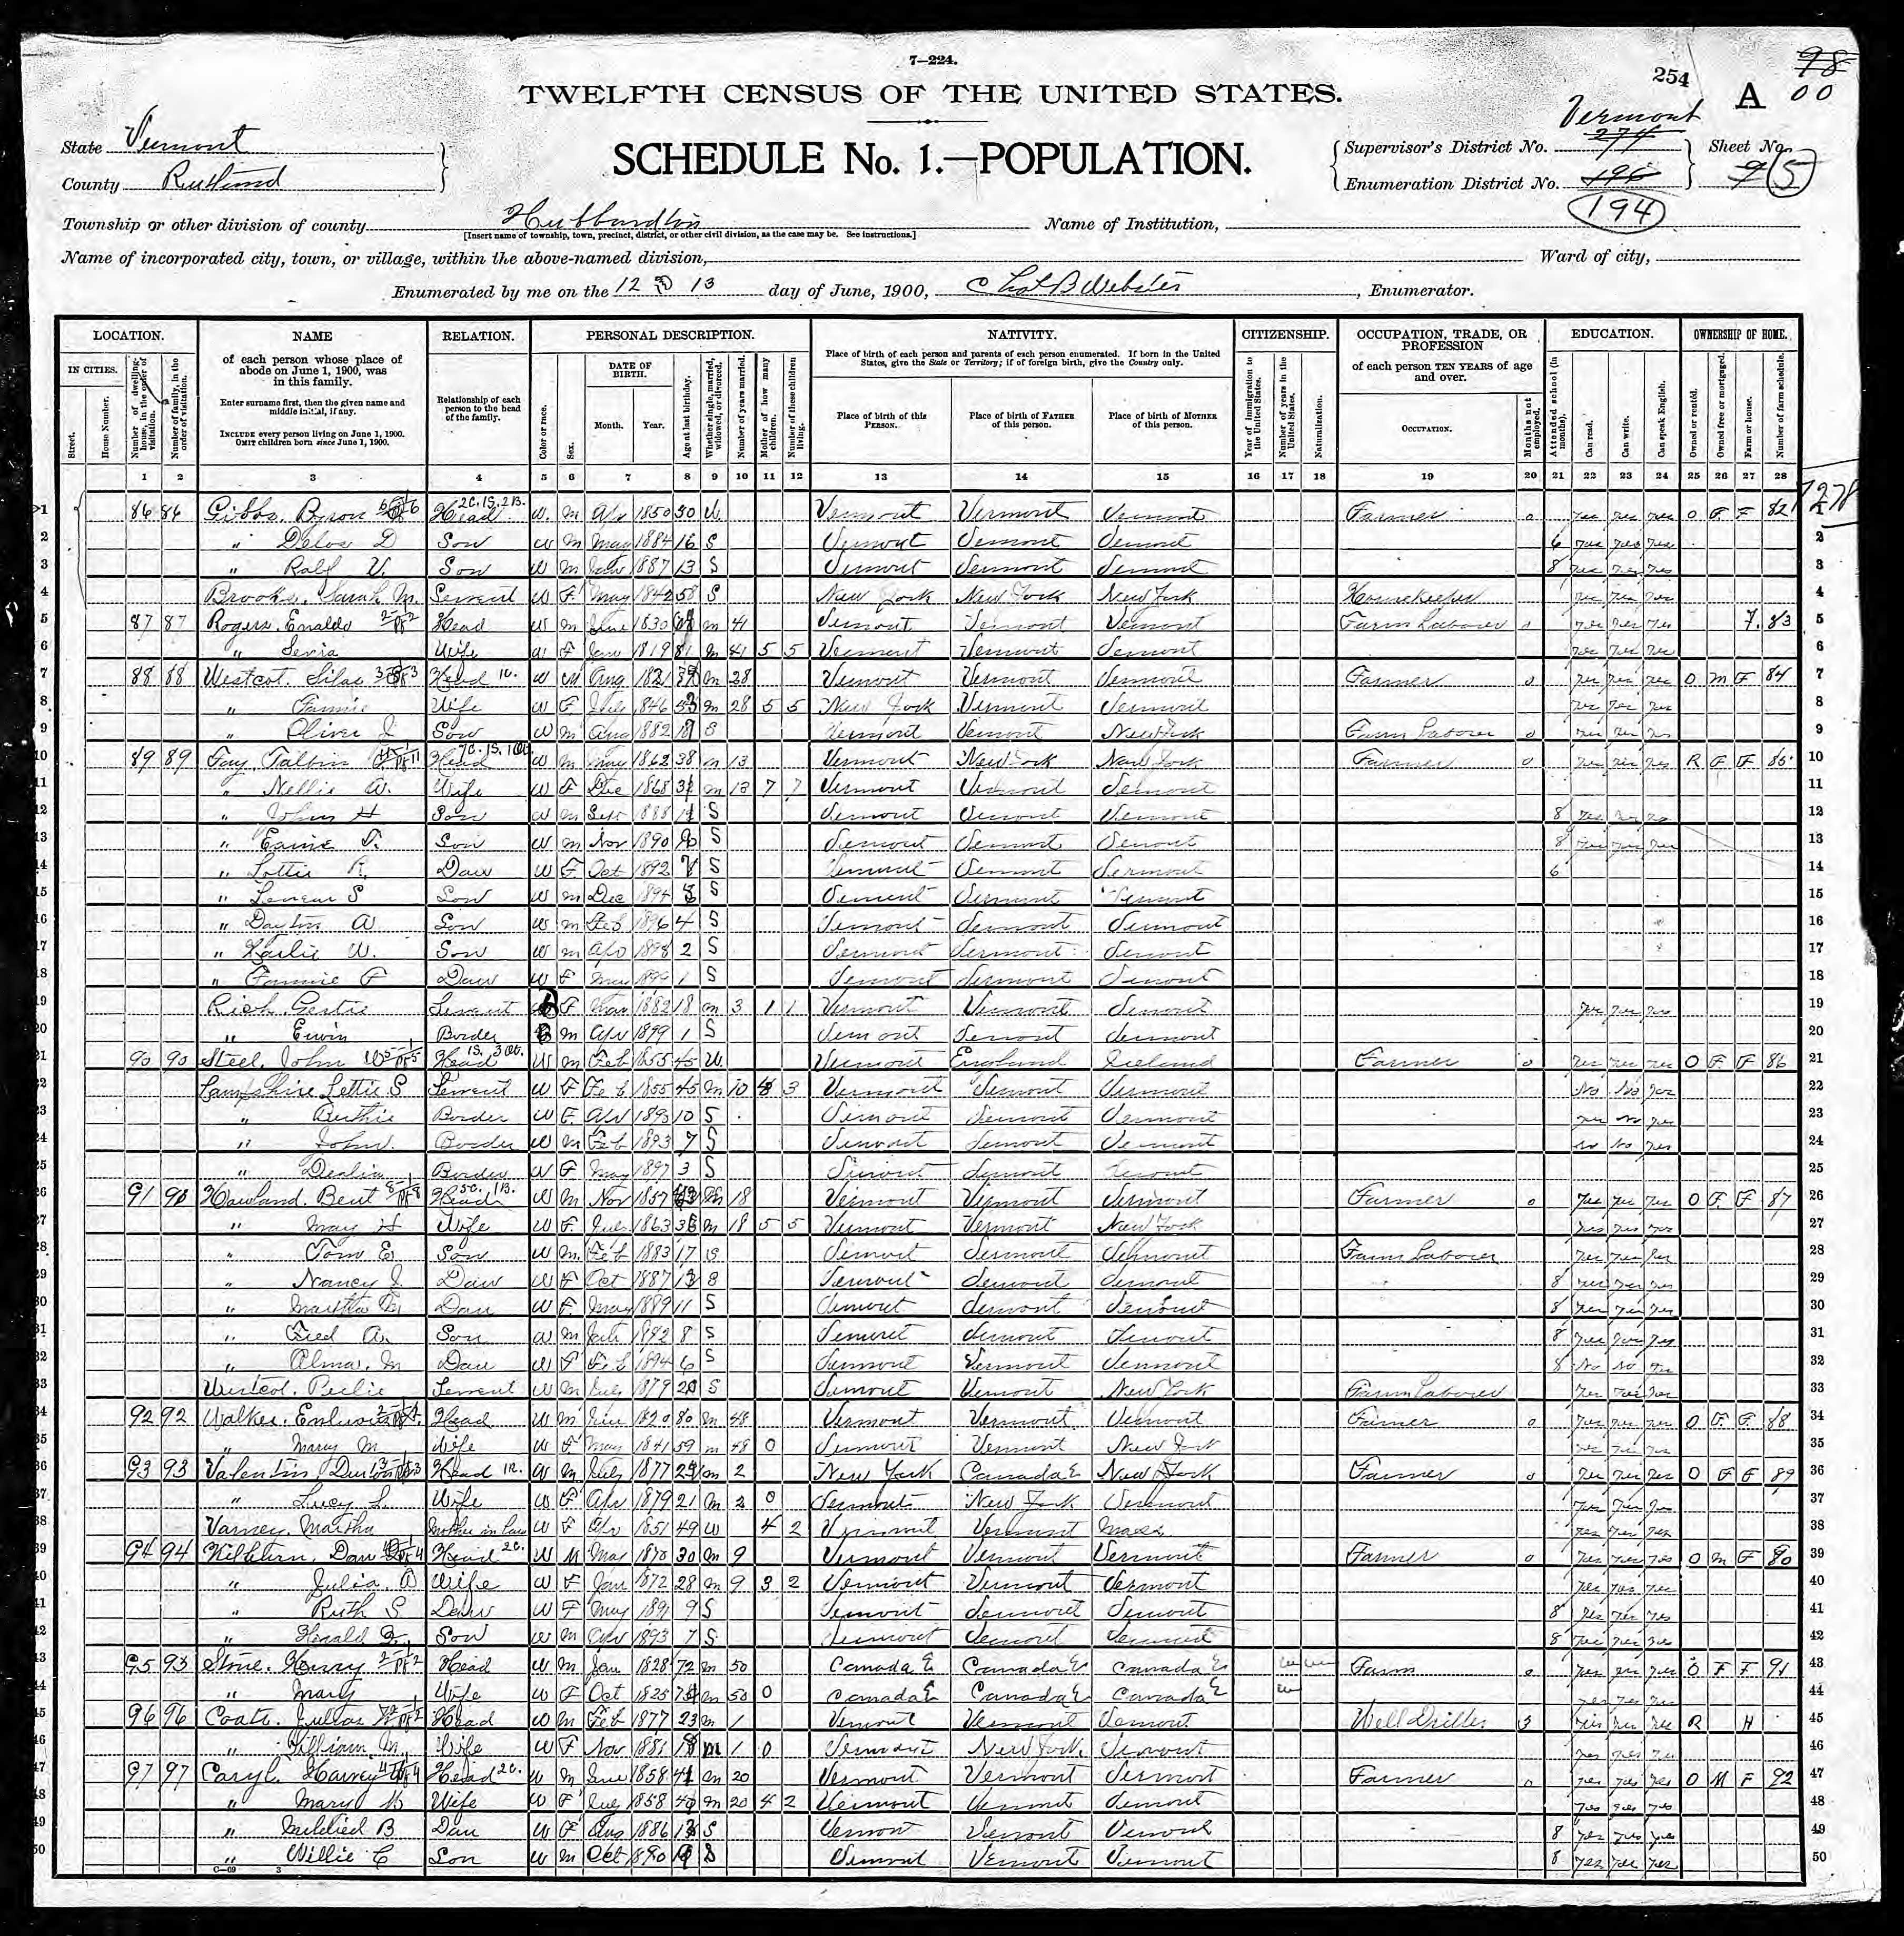 7—224.
254
A
98
00
TWELFTH CENSUS OF THE UNITED STATES.
SCHEDULE No. 1.—POPULATION.
State Vermont
County Rutland
Vermont
Supervisor's District No. 274
Sheet No.
Enumeration District No. 196
9 5
194
Township or other division of county Hubbardton
Name of Institution,
[Insert name of township, town, precinct, district, or other civil division, as the case may be. See instructions.]
Name of incorporated city, town, or village, within the above-named division,
Ward of city,
Enumerated by me on the 12 & 13 day of June, 1900, Chas B Webster, Enumerator.
LOCATION. NAME RELATION. PERSONAL DESCRIPTION. NATIVITY. CITIZENSHIP. OCCUPATION, TRADE, OR PROFESSION EDUCATION. OWNERSHIP OF HOME.
IN CITIES.
Street.
House Number.
Number of dwelling-house, in the order of visitation.
Number of family, in the order of visitation.
of each person whose place of abode on June 1, 1900, was in this family.
Enter surname first, then the given name and middle initial, if any.
INCLUDE every person living on June 1, 1900.
OMIT children born since June 1, 1900.
Relationship of each person to the head of the family.
Color or race.
Sex.
DATE OF BIRTH.
Month. Year.
Age at last birthday.
Whether single, married, widowed, or divorced.
Number of years married.
Mother of how many children.
Number of these children living.
Place of birth of each person and parents of each person enumerated. If born in the United States, give the State or Territory; if of foreign birth, give the Country only.
Place of birth of this PERSON.
Place of birth of FATHER of this person.
Place of birth of MOTHER of this person.
Year of immigration to the United States.
Number of years in the United States.
Naturalization.
of each person TEN YEARS of age and over.
OCCUPATION.
Months not employed.
Attended school (in months).
Can read.
Can write.
Can speak English.
Owned or rented.
Owned free or mortgaged.
Farm or house.
Number of farm schedule.
1 2 3 4 5 6 7 8 9 10 11 12 13 14 15 16 17 18 19 20 21 22 23 24 25 26 27 28
1 86 86 Gibbs, Byron Head W M Apr 1850 50 Vermont Vermont Vermont Farmer 0 yes yes yes O F F 82
2 " Delos D Son W M May 1884 16 S Vermont Vermont Vermont 6 yes yes yes 2
3 " Ralf Son W M 1887 13 S Vermont Vermont Vermont 8 yes yes yes 3
4 Brooks, Sarah M. Servent W F May 1842 58 S New York New York New York Housekeeper yes yes yes 4
5 87 87 Rogers, Head W M June 1830 M 41 Vermont Vermont Vermont Farm Laborer 0 yes yes yes F 83 5
6 " Wife W F Jan 1819 81 M 41 5 5 Vermont Vermont Vermont yes yes yes 6
7 88 88 Westcot, Silas Head W M Aug 1821 M 28 Vermont Vermont Vermont Farmer 0 yes yes yes O M F 84 7
8 " Fannie Wife W F 1846 53 M 28 5 5 New York Vermont Vermont yes yes yes 8
9 " Oliver J Son W M Aug 1882 S Vermont Vermont New York Farm Laborer 0 yes yes yes 9
10 89 89 Fay, Head W M May 1862 38 M 13 Vermont New York New York Farmer 0 yes yes yes R F F 85 10
11 " Nellie A. Wife W F Dec 1868 31 M 13 7 7 Vermont Vermont Vermont 11
12 " John H Son W M Sept 1888 11 S Vermont Vermont Vermont 8 yes yes yes 12
13 " Son W M Nov 1890 S Vermont Vermont Vermont 8 yes yes yes 13
14 " Lottie R. Daw W F Oct 1892 7 S Vermont Vermont Vermont 6 14
15 " S Son W M Dec 1894 5 S Vermont Vermont Vermont 15
16 " Dayton A Son W M Feb 1896 4 S Vermont Vermont Vermont 16
17 " Leslie W. Son W M Apr 1898 2 S Vermont Vermont Vermont 17
18 " Fannie F Daw W F May 1899 1 S Vermont Vermont Vermont 18
19 Rich, Gertie Servent B F Mar 1882 18 M 3 1 1 Vermont Vermont Vermont yes yes yes 19
20 " Erwin Border B M Apr 1899 1 S Vermont Vermont Vermont 20
21 90 90 Steel, John W Head W M Feb 1855 45 W. Vermont England Ireland Farmer 0 yes yes yes O F F 86 21
22 Lampshire Lettie S Servent W F Feb 1855 45 M 10 3 Vermont Vermont Vermont No No yes 22
23 " Border W F Apr 10 S Vermont Vermont Vermont yes No yes 23
24 " John Border W M Feb 1893 7 S Vermont Vermont Vermont No No yes 24
25 " Border W F May 1897 3 S Vermont Vermont Vermont 25
26 91 91 Howland, Bert Head W M Nov 1857 M 18 Vermont Vermont Vermont Farmer 0 yes yes yes O F F 87 26
27 " May H Wife W F July 1863 36 M 18 5 5 Vermont Vermont New York yes yes yes 27
28 " Tom E Son W M Feb 1883 17 S Vermont Vermont Vermont Farm Laborer yes yes yes 28
29 " Nancy J. Daw W F Oct 1887 S Vermont Vermont Vermont 8 yes yes yes 29
30 " Martha M Dau W F May 1889 11 S Vermont Vermont Vermont 8 yes yes yes 30
31 " Fred A. Son W M 1892 8 S Vermont Vermont Vermont 8 yes yes yes 31
32 " Alma M Dau W F Feb 1894 6 S Vermont Vermont Vermont 8 No No yes 32
33 Westcot, Servent W M July 1879 20 S Vermont Vermont New York Farm Laborer yes yes yes 33
34 92 92 Walker, Head W M 1820 80 M 48 Vermont Vermont Vermont Farmer 0 yes yes yes O F F 88 34
35 " Mary M Wife W F May 1841 59 M 48 0 Vermont Vermont New York yes yes yes 35
36 93 93 Valentin Head W M July 1877 M 2 New York Canada E New York Farmer 0 yes yes yes O F F 89 36
37 " Lucy L. Wife W F Apr 1879 21 M 2 0 Vermont New York Vermont yes yes yes 37
38 Varney, Martha Mother in law W F Apr 1851 49 W 4 2 Vermont Vermont Mass. yes yes yes 38
39 94 94 Kilburn, Dan Head W M May 1870 30 M 9 Vermont Vermont Vermont Farmer 0 yes yes yes O M F 90 39
40 " Julia A Wife W F Jan 1872 28 M 9 3 2 Vermont Vermont Vermont yes yes yes 40
41 " Ruth S Daw W F May 1891 9 S Vermont Vermont Vermont 8 yes yes yes 41
42 " Son W M Apr 1893 7 S Vermont Vermont Vermont 8 yes yes yes 42
43 95 95 Stone, Henry Head W M Jan 1828 72 M 50 Canada E Canada E Canada E Farm 0 yes yes yes O F F 91 43
44 " Mary Wife W F Oct 1825 M 50 0 Canada E Canada E Canada E yes yes yes 44
45 96 96 Coats, Head W M Feb 1877 23 M 1 Vermont Vermont Vermont Well Driller 3 yes yes yes R H 45
46 " M. Wife W F Nov 1881 18 M 1 0 Vermont New York Vermont yes yes yes 46
47 97 97 Caryl, Harvey Head W M June 1858 M 20 Vermont Vermont Vermont Farmer 0 yes yes yes O M F 92 47
48 " Mary Wife W F July 1858 M 20 4 2 Vermont Vermont Vermont yes yes yes 48
49 " Mildred B Dau W F Aug 1886 13 S Vermont Vermont Vermont 8 yes yes yes 49
50 " Willie C Son W M Oct 1890 9 S Vermont Vermont Vermont 8 yes yes yes 50